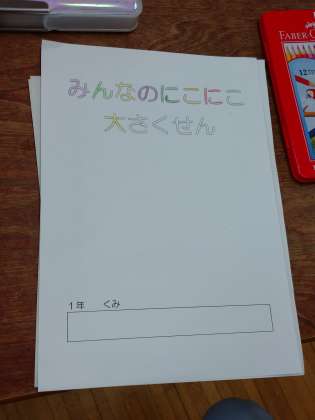 みんなのにこにこ
大さくせん
1年 くみ
FABER-C
12